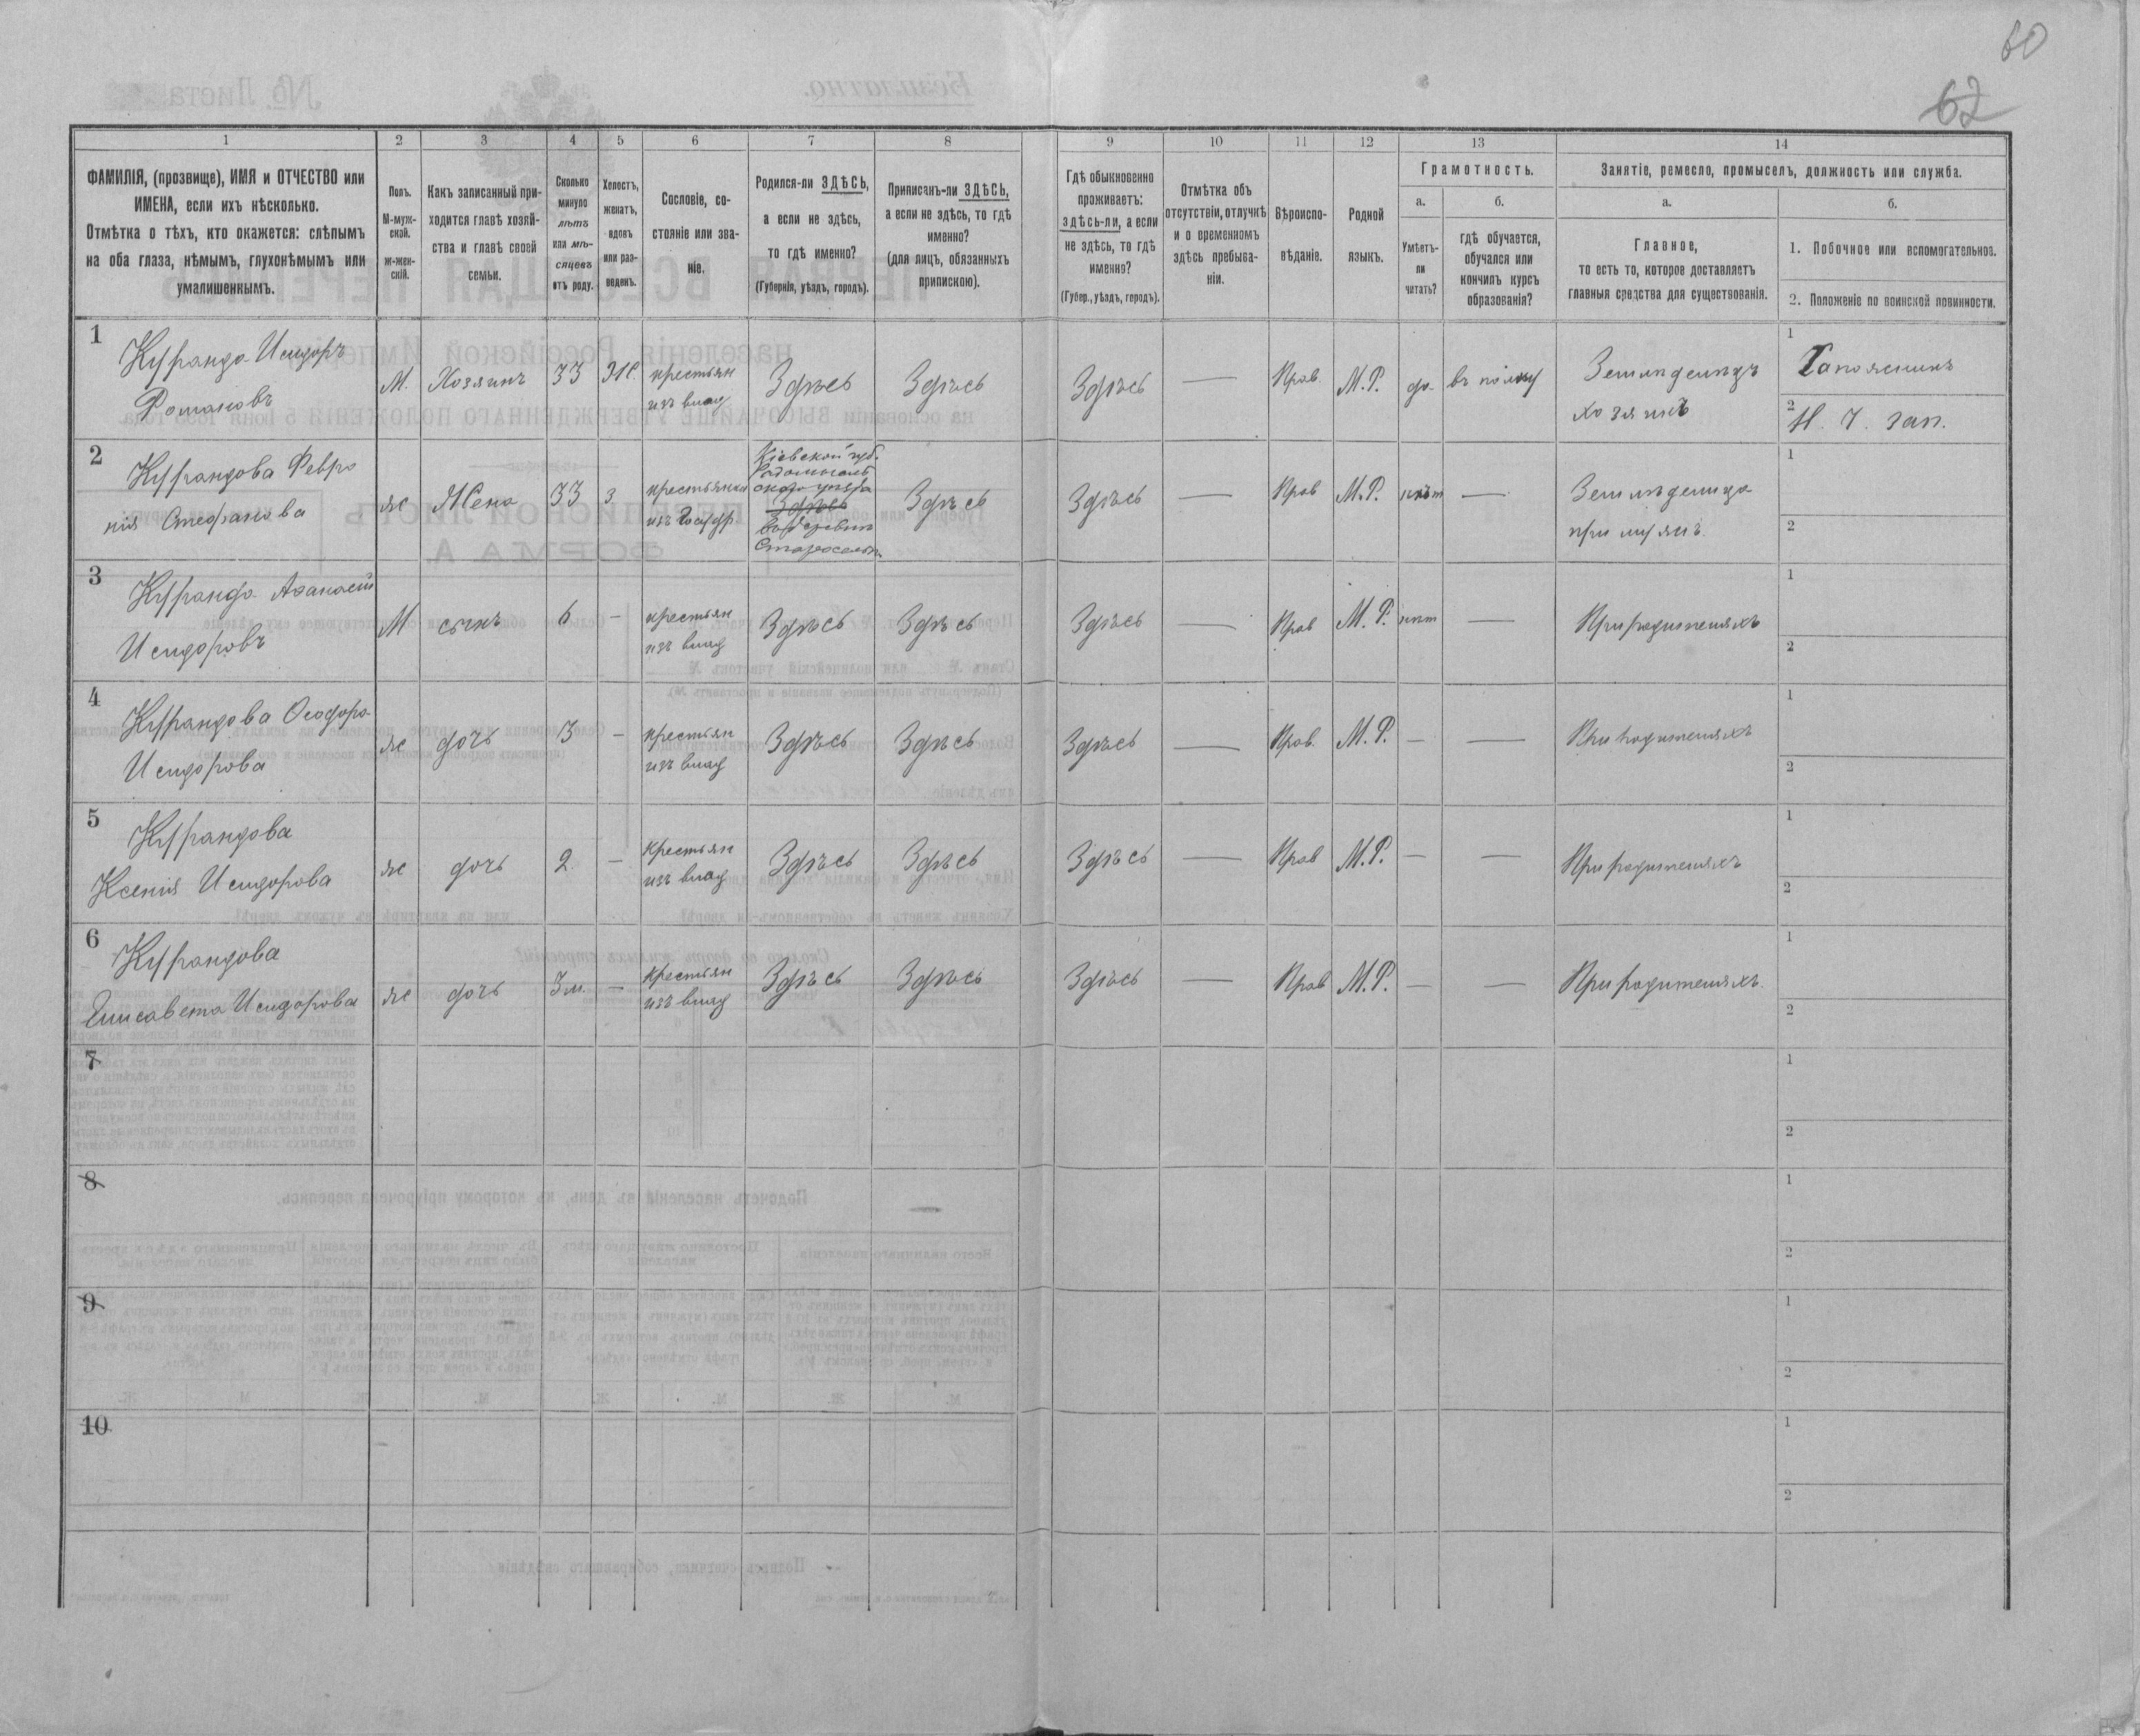 60
62
1 2 3 4 5 6 7 8 9 10 11 12 13 14
ФАМИЛІЯ, (прозвище), ИМЯ и ОТЧЕСТВО или
ИМЕНА, если ихъ нѣсколько.
Отмѣтка о тѣхъ, кто окажется: слѣпымъ
на оба глаза, нѣмымъ, глухонѣмымъ или
умалишеннымъ.
Полъ.
М-муж-
ской.
ж-жен-
скій.
Какъ записанный при-
ходится главѣ хозяй-
ства и главѣ своей
семьи.
Сколько
минуло
лѣтъ
или мѣ-
сяцевъ
отъ роду.
Холостъ,
женатъ,
вдовъ
или раз-
веденъ.
Сословіе, со-
стояніе или зва-
ніе.
Родился-ли ЗДѢСЬ,
а если не здѣсь,
то гдѣ именно?
(Губернія, уѣздъ, городъ).
Приписанъ-ли ЗДѢСЬ,
а если не здѣсь, то гдѣ
именно?
(для лицъ, обязанныхъ
припискою).
Гдѣ обыкновенно
проживаетъ:
здѣсь-ли, а если
не здѣсь, то гдѣ
именно?
(Губер., уѣздъ, городъ).
Отмѣтка объ
отсутствіи, отлучкѣ
и о временномъ
здѣсь пребыва-
ніи.
Вѣроиспо-
вѣданіе.
Родной
языкъ.
Грамотность.
а.
Умѣетъ-
ли
читать?
б.
гдѣ обучается,
обучался или
кончилъ курсъ
образованія?
Занятіе, ремесло, промыселъ, должность или служба.
а.
Главное,
то есть то, которое доставляетъ
главныя средства для существованія.
б.
1. Побочное или вспомогательное.
2. Положеніе по воинской повинности.
1
Курандо Исидоръ
Романовъ
М. Хозяинъ 33 Ж.
крестьян
изъ влад
Здѣсь Здѣсь Здѣсь — Прав. М.Р. да въ полку
Земледѣлецъ
хозяинъ
1
2 Н. Ч. зап.
2
Курандова Февро
нія Стефанова
ж Жена 33 з
крестьянка
изъ госуд
Кіевской губ.
Радомысль
скаго уѣзда
Здѣсь
Старосельи
Здѣсь Здѣсь — Прав М.Р. нѣт —
Земледѣлица
при мужѣ.
1
2
3
Курандо Афанасій
Исидоровъ
М сынъ 6 —
крестьян
изъ влад
Здѣсь Здѣсь Здѣсь — Прав М.Р. нѣт — При родителяхъ
1
2
4
Курандова Ѳеодора
Исидорова
ж дочь 3 —
крестьян
изъ влад
Здѣсь Здѣсь Здѣсь — Прав. М.Р. — — При родителяхъ
1
2
5
Курандова
Ксенія Исидорова
ж дочь 2 —
крестьян
изъ влад
Здѣсь Здѣсь Здѣсь — Прав М.Р. — — При родителяхъ
1
2
6
Курандова
Елисавета Исидорова
ж дочь 3 м. —
крестьян
изъ влад
Здѣсь Здѣсь Здѣсь — Прав М.Р. — — При родителяхъ.
1
2
7
1
2
8
1
2
9
1
2
10
1
2